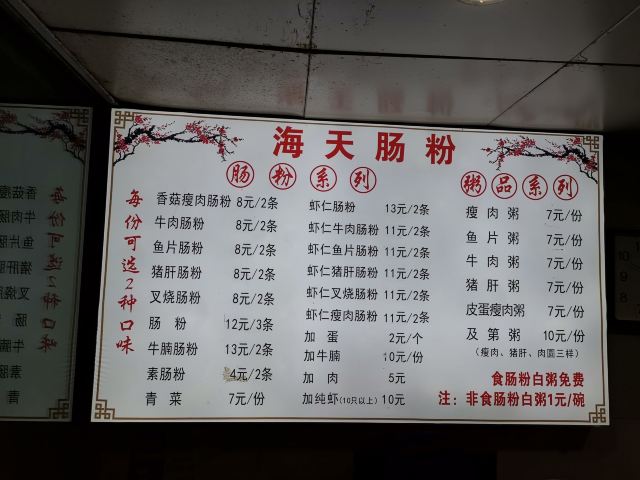 海天肠粉
肠粉系列
粥品系列
每份可选2种口味
香菇瘦肉肠粉 8元/2条
牛肉肠粉 8元/2条
鱼片肠粉 8元/2条
猪肝肠粉 8元/2条
叉烧肠粉 8元/2条
肠粉 12元/3条
牛腩肠粉 13元/2条
素肠粉 4元/2条
青菜 7元/份
虾仁肠粉 13元/2条
虾仁牛肉肠粉 11元/2条
虾仁鱼片肠粉 11元/2条
虾仁猪肝肠粉 11元/2条
虾仁叉烧肠粉 11元/2条
虾仁瘦肉肠粉 11元/2条
加蛋 2元/个
加牛腩 10元/份
加肉 5元
加纯虾(10只以上) 10元
瘦肉粥 7元/份
鱼片粥 7元/份
牛肉粥 7元/份
猪肝粥 7元/份
皮蛋瘦肉粥 7元/份
及第粥 10元/份
(瘦肉、猪肝、肉圆三样)
食肠粉白粥免费
注：非食肠粉白粥1元/碗